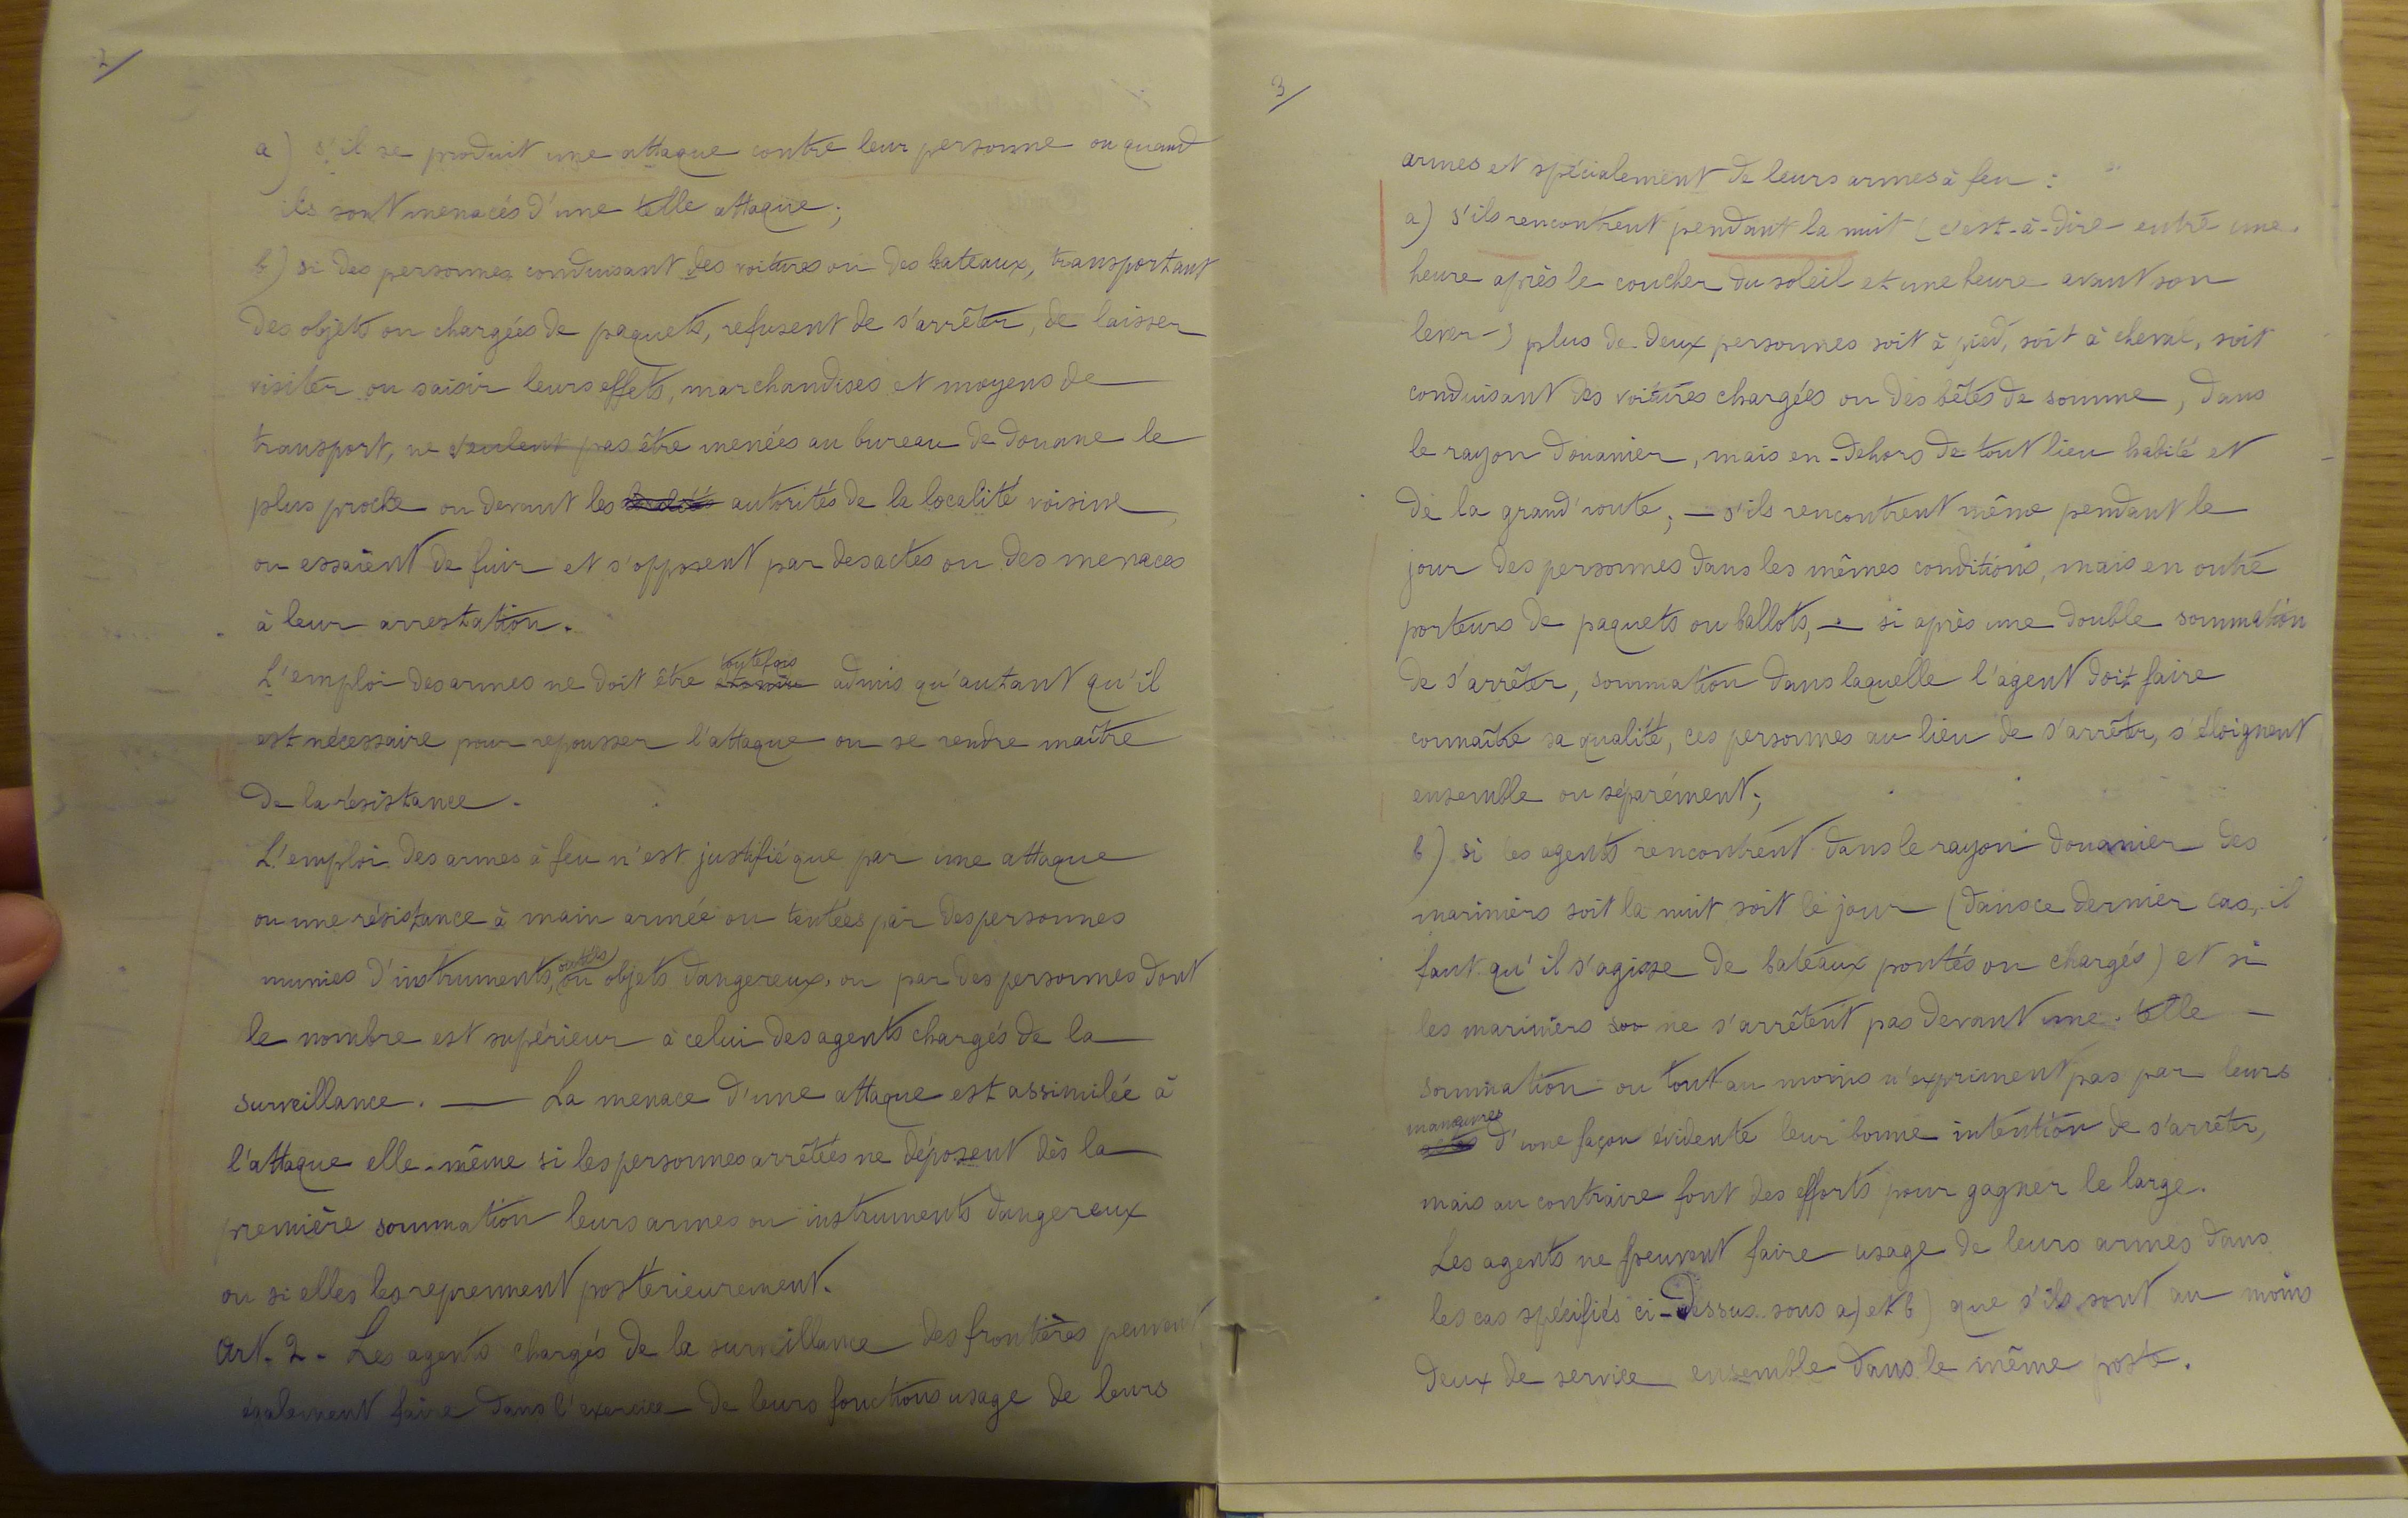 2/
a) s'il se produit une attaque contre leur personne ou quand
ils sont menacés d'une telle attaque;
b) si des personnes conduisant des voitures ou des bateaux, transportant
des objets ou chargées de paquets, refusent de s'arrêter, de laisser
visiter ou saisir leurs effets, marchandises et moyens de
transport, ne veulent pas être menées au bureau de douane le
plus proche ou devant les autorités de la localité voisine,
ou essaient de fuir et s'opposent par des actes ou des menaces
à leur arrestation.
L'emploi des armes ne doit être toutefois admis qu'autant qu'il
est nécessaire pour repousser l'attaque ou se rendre maître
de la résistance.
L'emploi des armes à feu n'est justifié que par une attaque
ou une résistance à main armée ou tentées par des personnes
munies d'instruments, outils ou objets dangereux, ou par des personnes dont
le nombre est supérieur à celui des agents chargés de la
surveillance. — La menace d'une attaque est assimilée à
l'attaque elle-même si les personnes arrêtées ne déposent dès la
première sommation leurs armes ou instruments dangereux
ou si elles les reprennent postérieurement.
Art. 2 - Les agents chargés de la surveillance des frontières peuvent
également faire dans l'exercice de leurs fonctions usage de leurs
3/
armes et spécialement de leurs armes à feu :
a) s'ils rencontrent pendant la nuit (c'est-à-dire entre une
heure après le coucher du soleil et une heure avant son
lever) plus de deux personnes soit à pied, soit à cheval, soit
conduisant des voitures chargées ou des bêtes de somme, dans
le rayon douanier, mais en-dehors de tout lieu habité et
de la grand'route; — s'ils rencontrent même pendant le
jour des personnes dans les mêmes conditions, mais en outre
porteurs de paquets ou ballots, — si après une double sommation
de s'arrêter, sommation dans laquelle l'agent doit faire
connaître sa qualité, ces personnes au lieu de s'arrêter, s'éloignent
ensemble ou séparément;
b) si les agents rencontrent dans le rayon douanier des
mariniers soit la nuit soit le jour (dans ce dernier cas, il
faut qu'il s'agisse de bateaux pontés ou chargés) et si
les mariniers ne s'arrêtent pas devant une telle
sommation ou tout au moins n'expriment pas par leurs
manœuvres d'une façon évidente leur bonne intention de s'arrêter,
mais au contraire font des efforts pour gagner le large.
Les agents ne peuvent faire usage de leurs armes dans
les cas spécifiés ci-dessus sous a) et b) que s'ils sont au moins
deux de service ensemble dans le même poste.